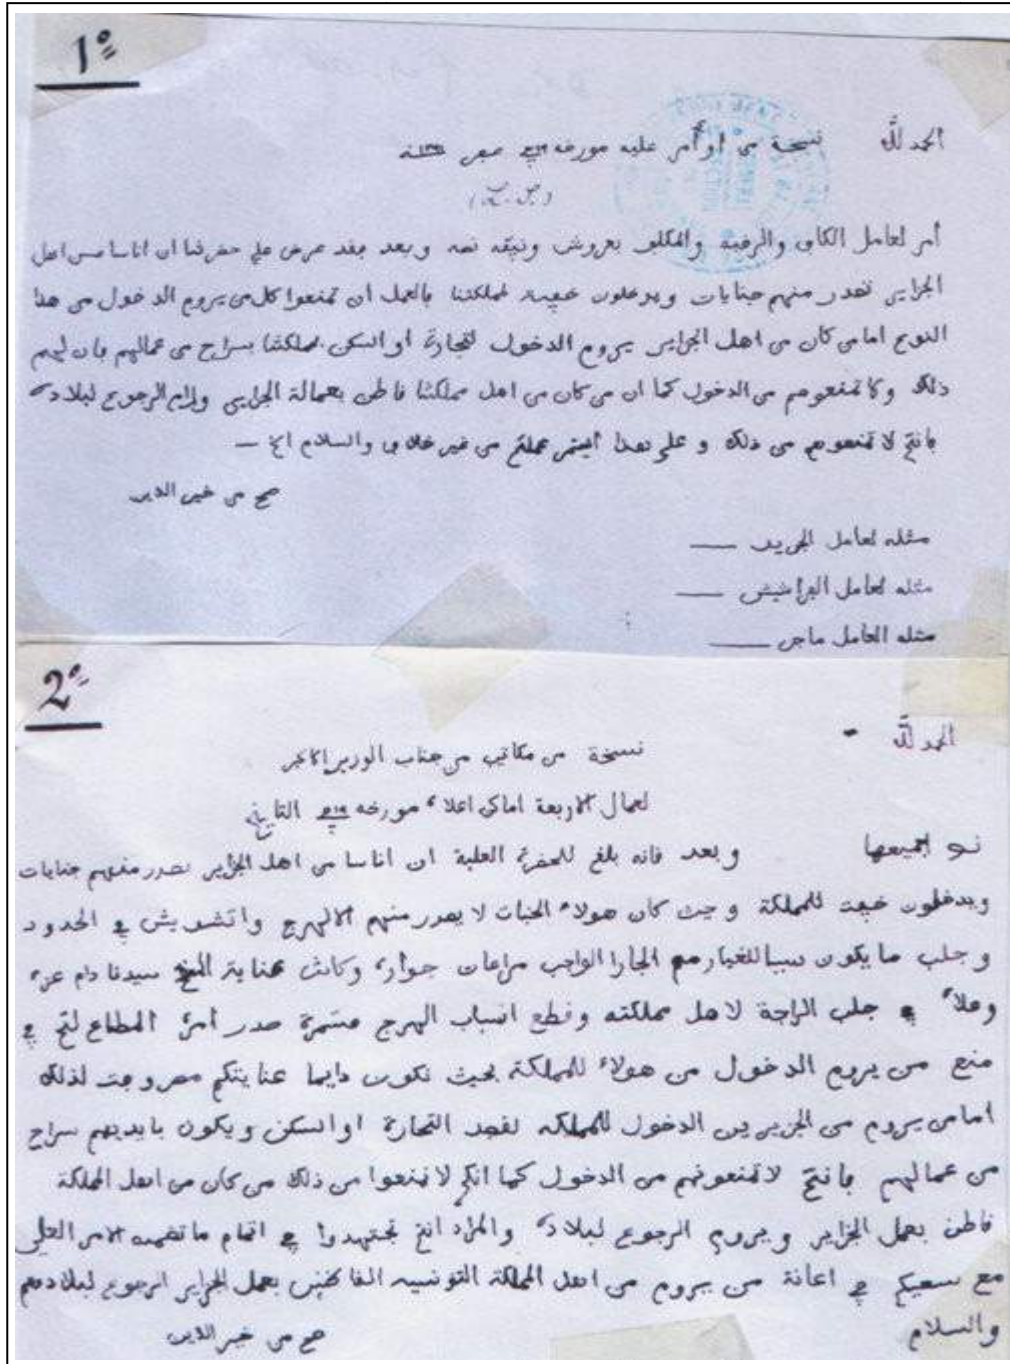 1º
الحمد لله نسخة من أوأمر عليه مورخه في صفر سنة
أمر لعامل الكاف والرقبه والمكلف بعروش ونيفه نصه وبعد فقد عرض على حضرتنا ان اناسا من اهل
الجزاير تصدر منهم جنايات ويدخلون خفية لمملكتنا فالعمل ان تمنعوا كل من يروم الدخول من هذا
النوع اما من كان من اهل الجزاير يروم الدخول لتجارة او السكن لمملكتنا بسراح من عمالهم فان لهم
ذلك ولا تمنعوهم من الدخول كما ان من كان من اهل مملكتنا قاطن بعمالة الجزاير ورام الرجوع لبلاده
فانتم لا تمنعوهم من ذلك و على هذا ليستمر عملكم من غير خلاف والسلام الخ —
صح من خير الدين
مثله لعامل الجريد —
مثله لعامل الفراشيش —
مثله العامل ماجر —
2º
الحمد لله -
نسخة من مكاتيب من جناب الوزير الاكبر
لعمال الاربعة اماكن اعلاه مورخه في التاريخ
نص جميعها وبعد فانه بلغ للحضرة العلية ان اناسا من اهل الجزاير تصدر منهم جنايات
ويدخلون خفية للمملكة وحيث كان هولاء الجنات لا يصدر منهم الا الهرج واتشويش في الحدود
وجلب ما يكون سببا للغيار مع الجار الواجب مراعات جواره وكانت عناية سيدنا دام عزه
وعلاه في جلب الراحة لاهل مملكته وقطع اسباب الهرج مستمرة صدر امره المطاع لكم في
منع من يروم الدخول من هولاء للمملكة بحيث تكون دايما عنايتكم مصروفة لذلك
اما من يروم من الجزيريين الدخول للمملكه لقصد التجارة او السكن ويكون بايديهم سراح
من عمالهم فانتم لا تمنعونهم من الدخول كما انكم لا تمنعوا من ذلك من كان من اهل المملكة
قاطن بعمل الجزاير ويروم الرجوع لبلاده والمراد انكم تجتهدوا في اتمام ما تضمنه الامر العلي
مع سعيكم في اعانة من يروم من اهل المملكة التونسيه القاطنين بعمل الجزاير الرجوع لبلادهم
والسلام صح من خير الدين